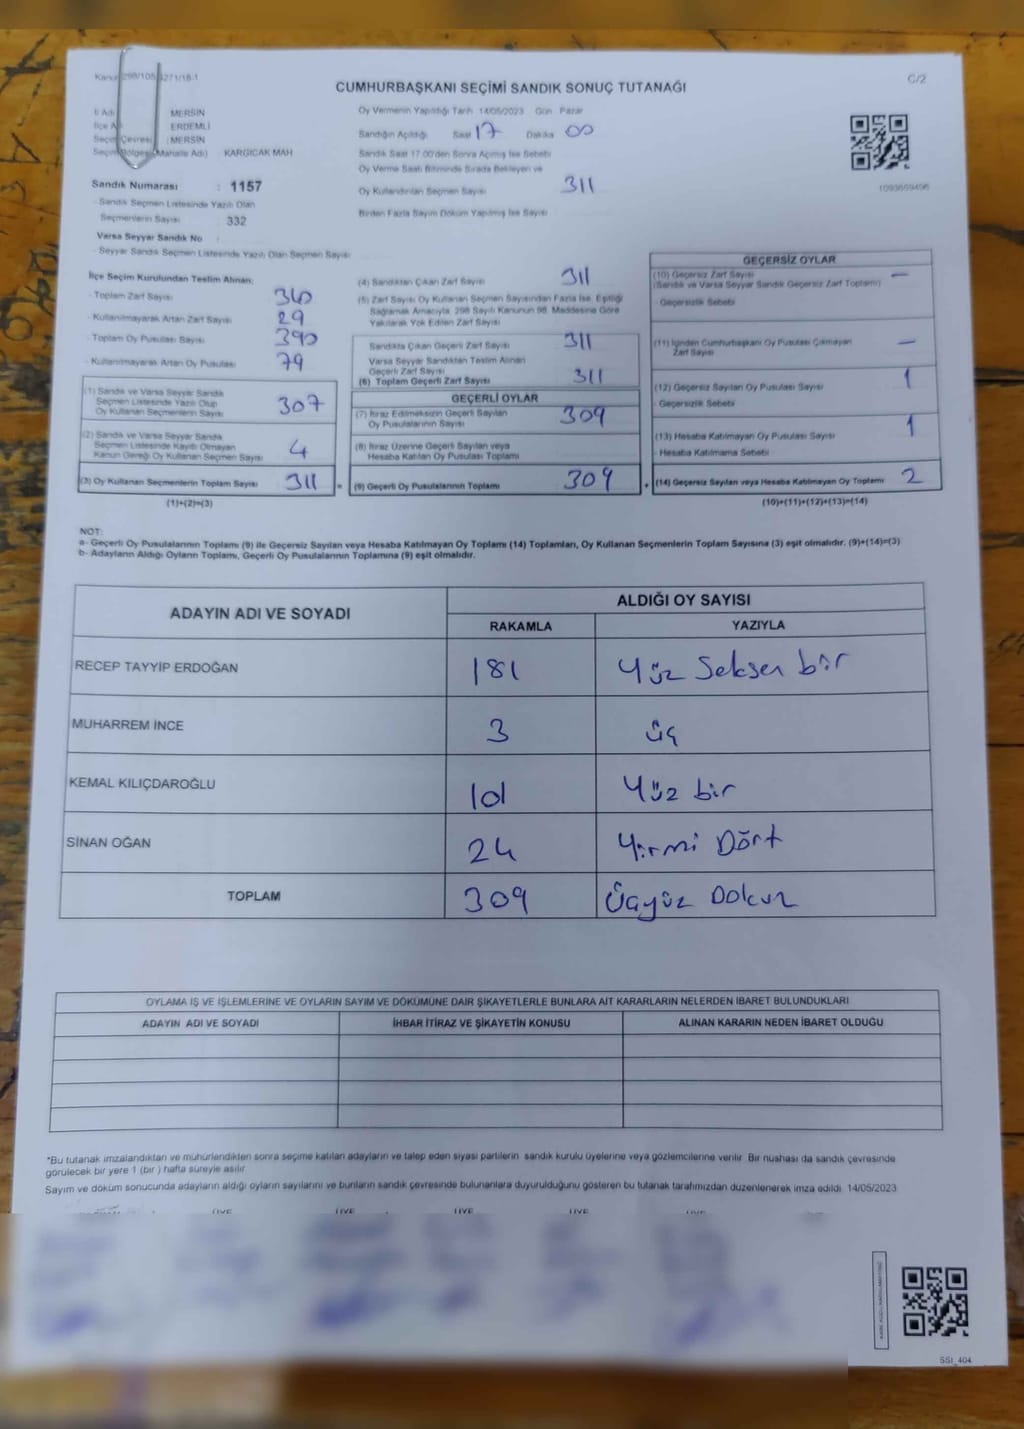 Kanun 298/105 6271/18-1
C/2
CUMHURBAŞKANI SEÇİMİ SANDIK SONUÇ TUTANAĞI
İl Adı MERSİN
İlçe A ERDEMLİ
Seçim Çevresi : MERSİN
Seçim Bölgesi (Mahalle Adı) KARGICAK MAH
Sandık Numarası : 1157
- Sandık Seçmen Listesinde Yazılı Olan
Seçmenlerin Sayısı 332
Varsa Seyyar Sandık No :
- Seyyar Sandık Seçmen Listesinde Yazılı Olan Seçmen Sayısı
Oy Vermenin Yapıldığı Tarih 14/05/2023 Gün Pazar
Sandığın Açıldığı Saat 17 Dakika 00
Sandık Saat 17.00'den Sonra Açılmış İse Sebebi
Oy Verme Saati Bitiminde Sırada Bekleyen ve
Oy Kullandırılan Seçmen Sayısı 311
Birden Fazla Sayım Döküm Yapılmış İse Sayısı
İlçe Seçim Kurulundan Teslim Alınan;
- Toplam Zarf Sayısı 340
- Kullanılmayarak Artan Zarf Sayısı 29
- Toplam Oy Pusulası Sayısı 390
- Kullanılmayarak Artan Oy Pusulası 79
(1) Sandık ve Varsa Seyyar Sandık
Seçmen Listesinde Yazılı Olup
Oy Kullanan Seçmenlerin Sayısı 307
(2) Sandık ve Varsa Seyyar Sandık
Seçmen Listesinde Kayıtlı Olmayan
Kanun Gereği Oy Kullanan Seçmen Sayısı 4
(3) Oy Kullanan Seçmenlerin Toplam Sayısı 311
(1)+(2)=(3)
(4) Sandıktan Çıkan Zarf Sayısı 311
(5) Zarf Sayısı Oy Kullanan Seçmen Sayısından Fazla İse, Eşitliği
Sağlamak Amacıyla, 298 Sayılı Kanunun 98. Maddesine Göre
Yakılarak Yok Edilen Zarf Sayısı
Sandıkta Çıkan Geçerli Zarf Sayısı 311
Varsa Seyyar Sandıktan Teslim Alınan
Geçerli Zarf Sayısı
(6) Toplam Geçerli Zarf Sayısı 311
GEÇERLİ OYLAR
(7) İtiraz Edilmeksizin Geçerli Sayılan
Oy Pusulalarının Sayısı 309
(8) İtiraz Üzerine Geçerli Sayılan veya
Hesaba Katılan Oy Pusulası Toplamı
= (9) Geçerli Oy Pusulalarının Toplamı 309
GEÇERSİZ OYLAR
(10) Geçersiz Zarf Sayısı —
(Sandık ve Varsa Seyyar Sandık Geçersiz Zarf Toplamı)
- Geçersizlik Sebebi
(11) İçinden Cumhurbaşkanı Oy Pusulası Çıkmayan —
Zarf Sayısı
(12) Geçersiz Sayılan Oy Pusulası Sayısı 1
- Geçersizlik Sebebi
(13) Hesaba Katılmayan Oy Pusulası Sayısı 1
- Hesaba Katılmama Sebebi
+ (14) Geçersiz Sayılan veya Hesaba Katılmayan Oy Toplamı 2
(10)+(11)+(12)+(13)=(14)
NOT:
a- Geçerli Oy Pusulalarının Toplamı (9) ile Geçersiz Sayılan veya Hesaba Katılmayan Oy Toplamı (14) Toplamları, Oy Kullanan Seçmenlerin Toplam Sayısına (3) eşit olmalıdır. (9)+(14)=(3)
b- Adayların Aldığı Oyların Toplamı, Geçerli Oy Pusulalarının Toplamına (9) eşit olmalıdır.
ADAYIN ADI VE SOYADI ALDIĞI OY SAYISI
RAKAMLA YAZIYLA
RECEP TAYYİP ERDOĞAN 181 Yüz Seksen bir
MUHARREM İNCE 3 üç
KEMAL KILIÇDAROĞLU 101 Yüz bir
SİNAN OĞAN 24 Yirmi Dört
TOPLAM 309 Üçyüz Dokuz
OYLAMA İŞ VE İŞLEMLERİNE VE OYLARIN SAYIM VE DÖKÜMÜNE DAİR ŞİKAYETLERLE BUNLARA AİT KARARLARIN NELERDEN İBARET BULUNDUKLARI
ADAYIN ADI VE SOYADI İHBAR İTİRAZ VE ŞİKAYETİN KONUSU ALINAN KARARIN NEDEN İBARET OLDUĞU
*Bu tutanak imzalandıktan ve mühürlendikten sonra seçime katılan adayların ve talep eden siyasi partilerin sandık kurulu üyelerine veya gözlemcilerine verilir. Bir nüshası da sandık çevresinde
görülecek bir yere 1 (bir) hafta süreyle asılır.
Sayım ve döküm sonucunda adayların aldığı oyların sayılarını ve bunların sandık çevresinde bulunanlara duyurulduğunu gösteren bu tutanak tarafımızdan düzenlenerek imza edildi. 14/05/2023
ÜYE ÜYE ÜYE ÜYE ÜYE
SSI_404